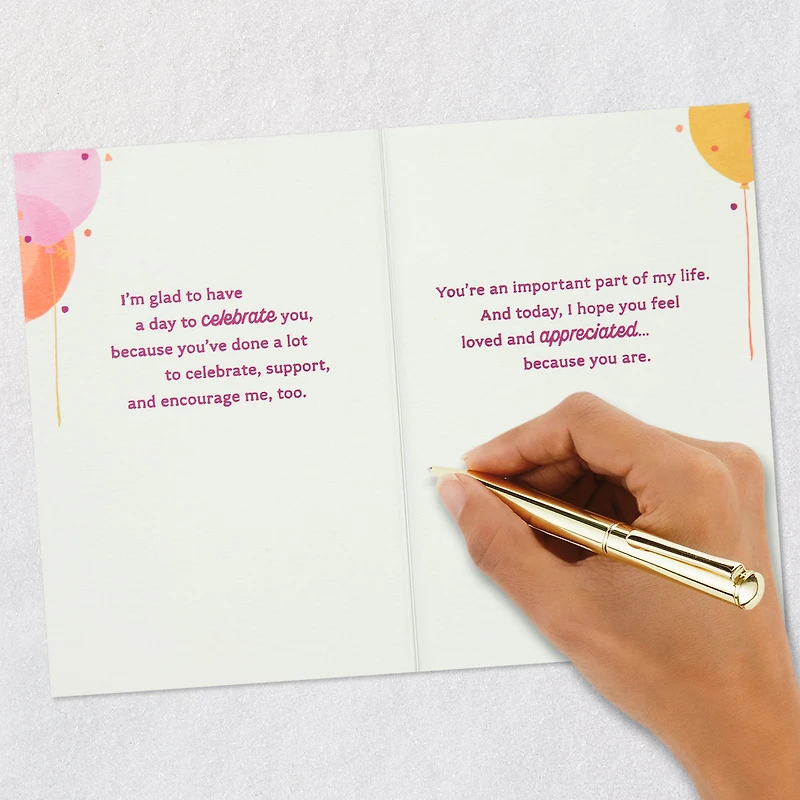 I'm glad to have
a day to celebrate you,
because you've done a lot
to celebrate, support,
and encourage me, too.
You're an important part of my life.
And today, I hope you feel
loved and appreciated...
because you are.